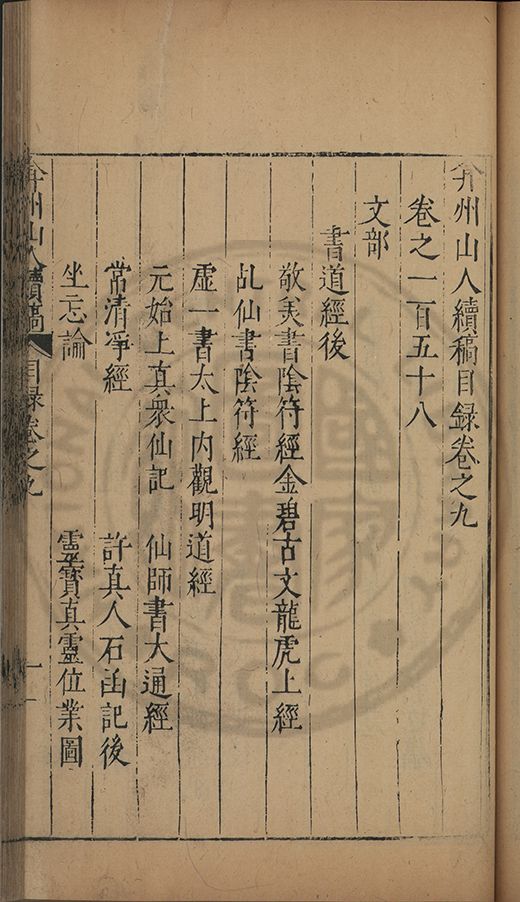 弇州山人續稿目録卷之九
卷之一百五十八
文部
書道經後
敬美書陰符經金碧古文龍虎上經
乩仙書陰符經
虛一書太上内觀明道經
元始上真衆仙記 仙師書大通經
常清凈經 許真人石函記後
坐忘論 靈寶真靈位業圖
弇州山人續稿 目録卷之九 一